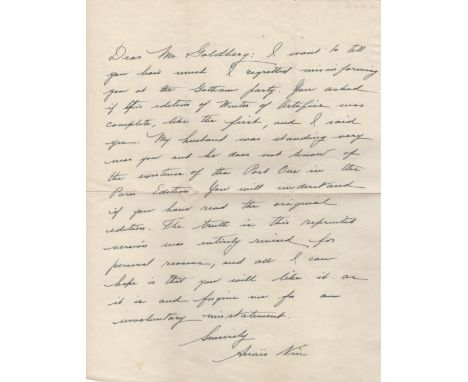 Dear Mr. Goldberg: I want to tell
you how much I regretted misinforming
you at the Gotham party. You asked
if this edition of Winter of Artifice was
complete, like the first, and I said
yes. My husband was standing very
near you and he does not know of
the existence of the Part One in the
Paris Edition. You will understand
if you have read the original
edition. The truth is this reprinted
version was entirely revised for
personal reasons, and all I can
hope is that you will like it as
it is and forgive me for an
involuntary misstatement.
Sincerely
Anaïs Nin